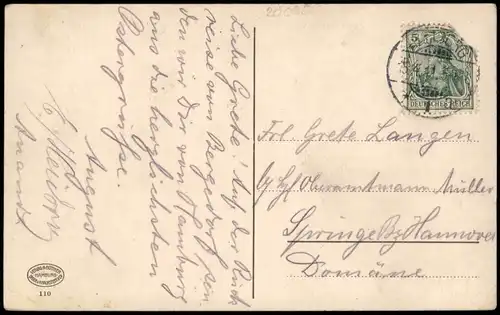 Liebe Grete! Auf der Rück
reise von Bergedorf sen
den wir Dir von Hamburg
aus die herzlichsten
Ostergrüße.
August
Amandt
5
DEUTSCHES REICH
Frl. Grete Langen
Oberamtmann Müller
Springe Bz Hannover
Domäne
110